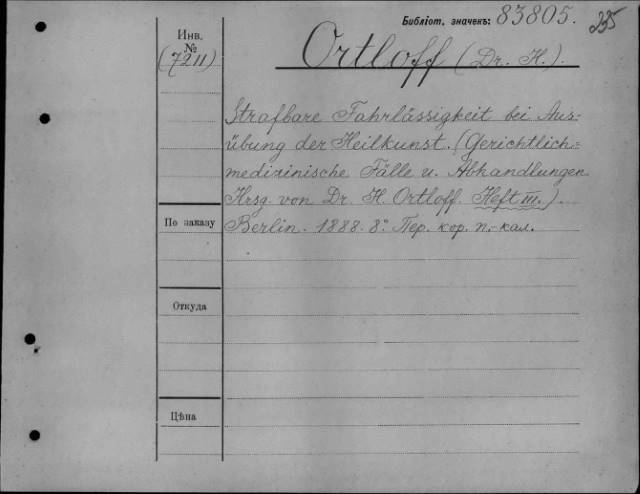 Библіот. значекъ: 83805. 235
Инв. № (7211)
Ortloff (Dr. H.).
Strafbare Fahrlässigkeit bei Aus-
übung der Heilkunst. (Gerichtlich-
medizinische Fälle u. Abhandlungen
Hrsg. von Dr. H. Ortloff. Heft III.).
По заказу
Berlin. 1888. 8º. Пер. кор. п.-кал.
Откуда
Цѣна